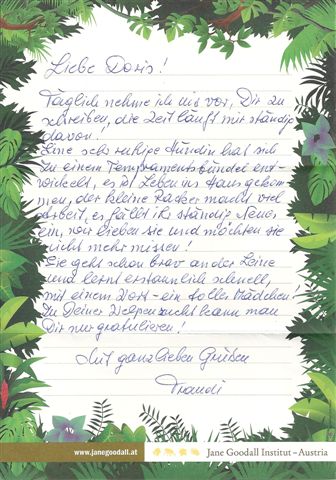 Liebe Doris!
Täglich nehme ich mir vor, Dir zu
schreiben, die Zeit läuft mir ständig
davon!
Eine sehr ruhige Hündin hat sich
zu einem Temperamentsbündel ent-
wickelt, es ist Leben ins Haus gekom-
men, der kleine Racker macht viel
Arbeit, es fällt ihr ständig Neues
ein, wir lieben sie und möchten sie
nicht mehr missen!
Sie geht schon brav an der Leine
und lernt erstaunlich schnell,
mit einem Wort - ein tolles Mädchen.
Zu Deiner Welpenzucht kann man
Dir nur gratulieren!
Mit ganz lieben Grüßen
Traudi
www.janegoodall.at
Jane Goodall Institut – Austria